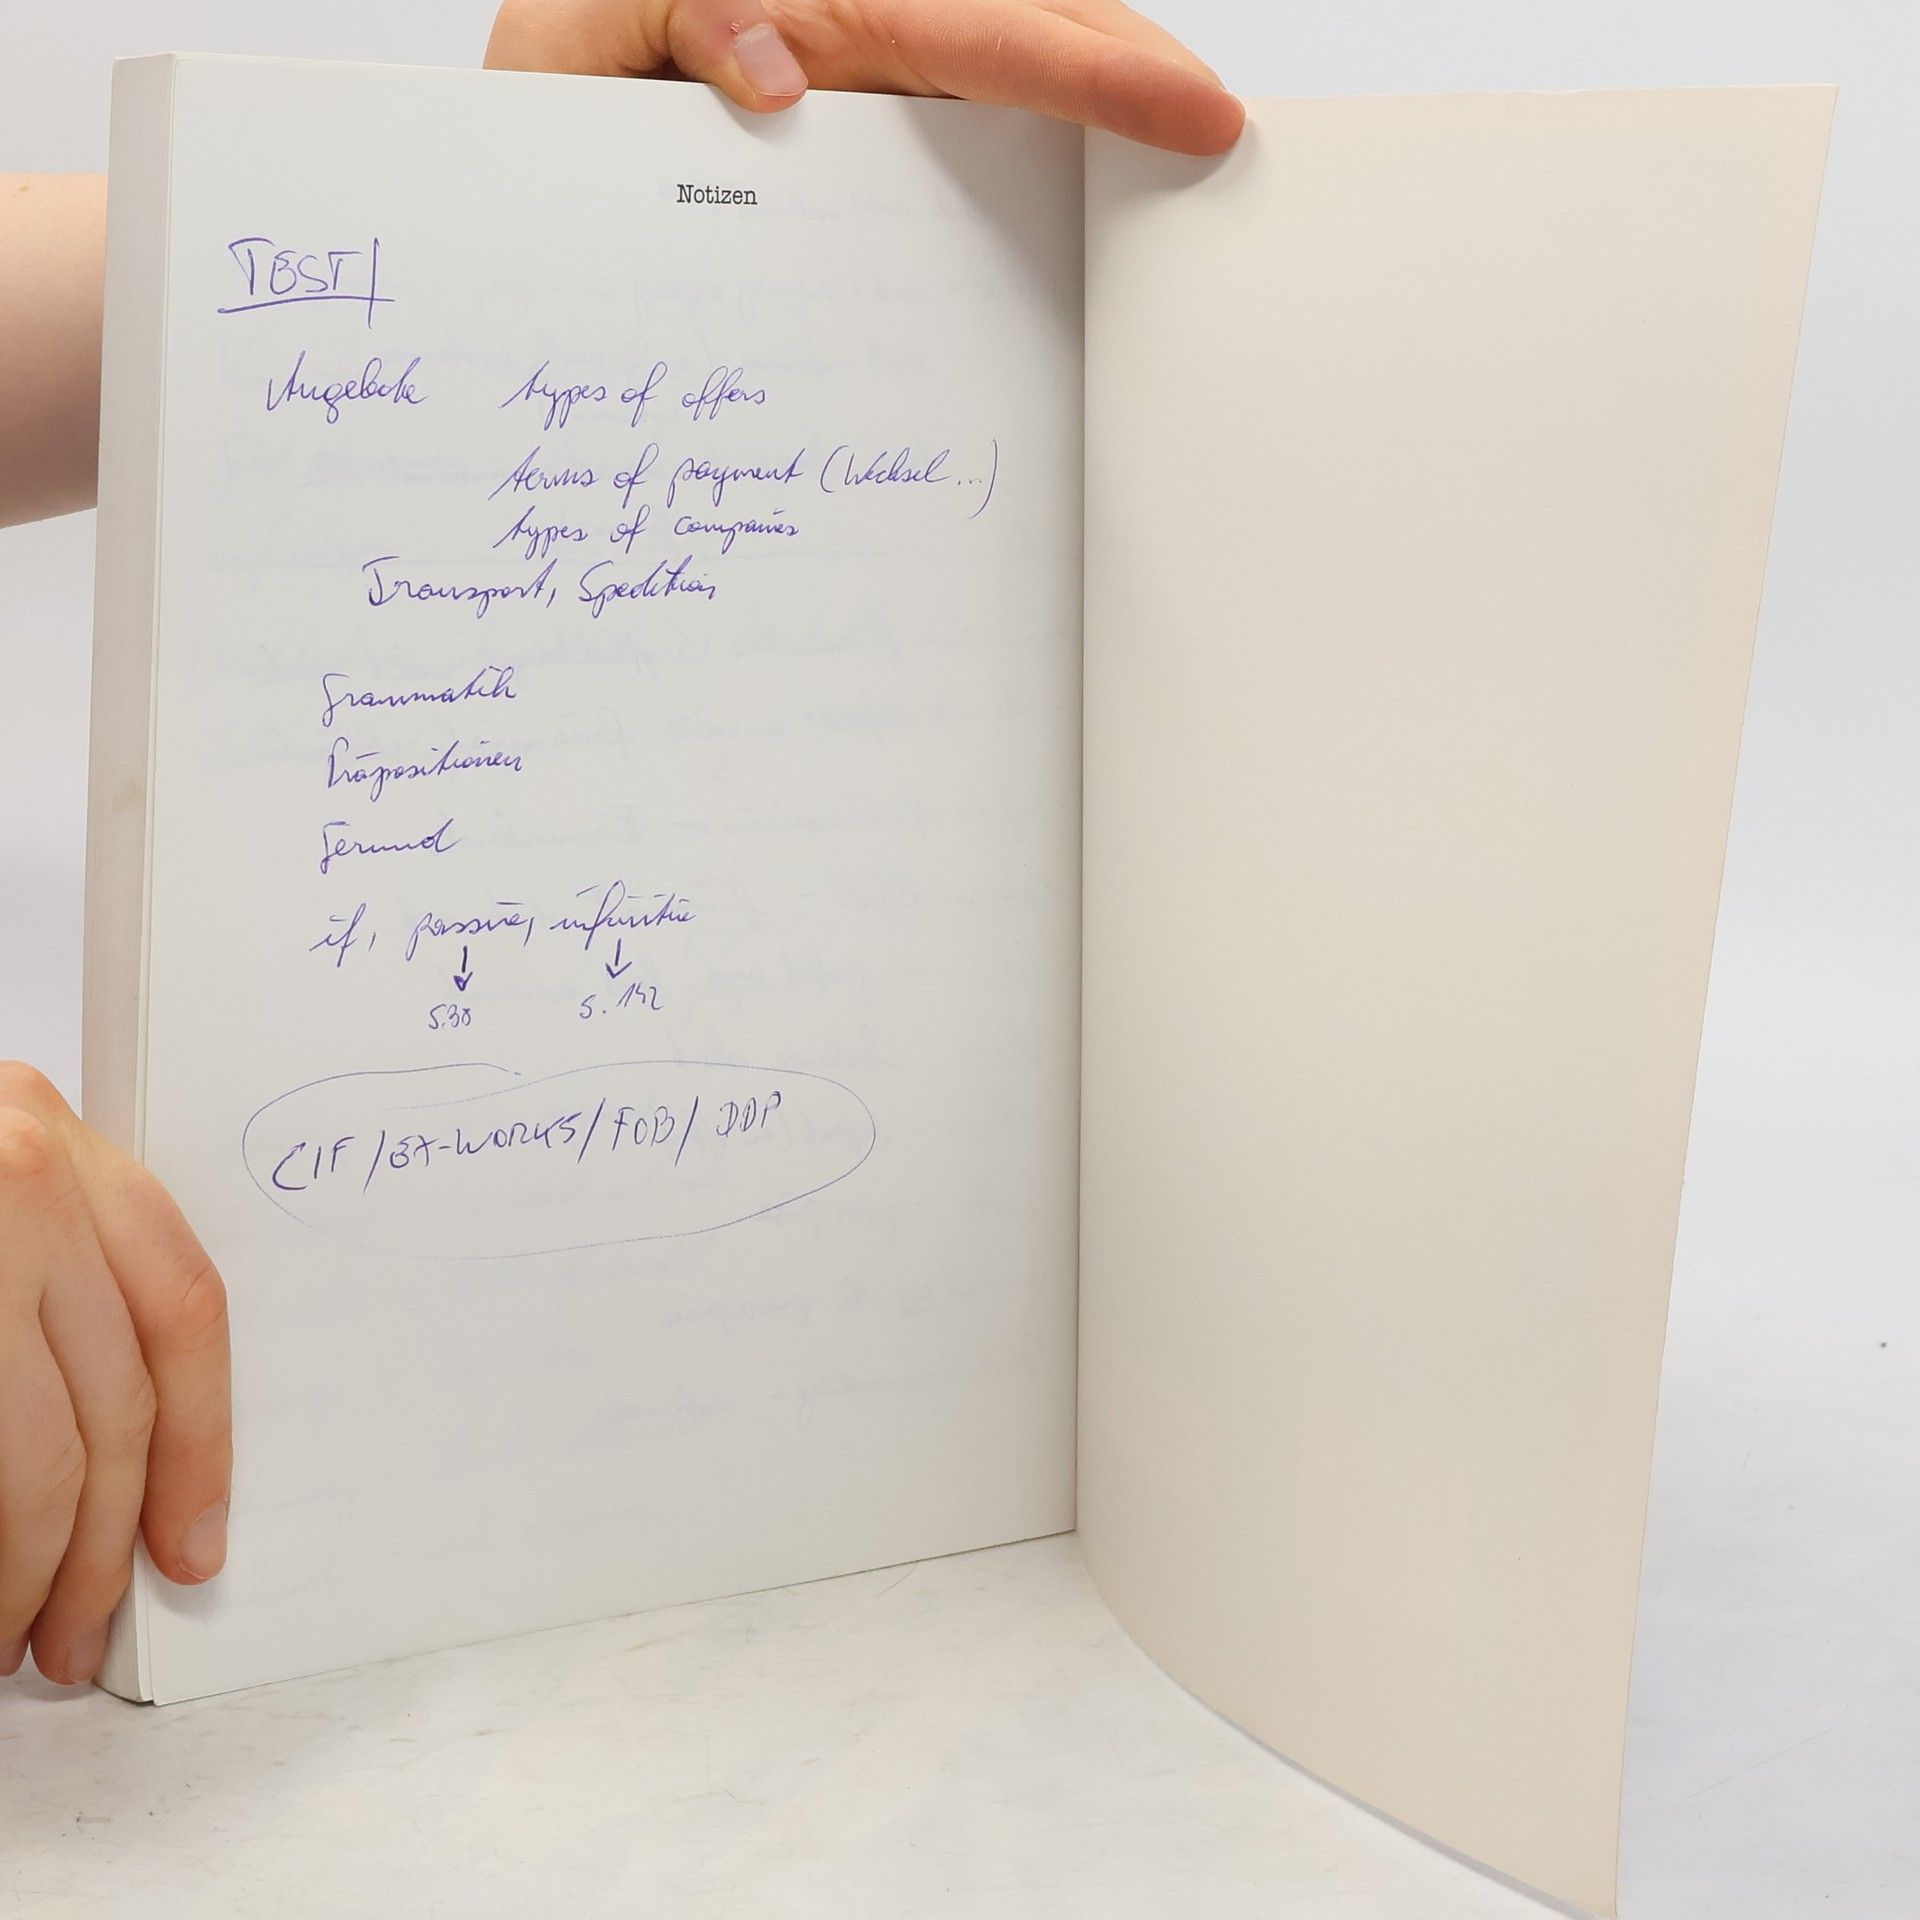 Notizen
TEST
Angebote types of offers
terms of payment (Wechsel...)
types of companies
Transport, Spedition
Grammatik
Präpositionen
Gerund
if, passive, infinitive
S.38 S. 142
CIF / EX-WORKS / FOB / DDP